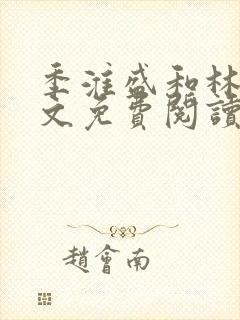 季漼盛和林
文免費閱讀
趙會南